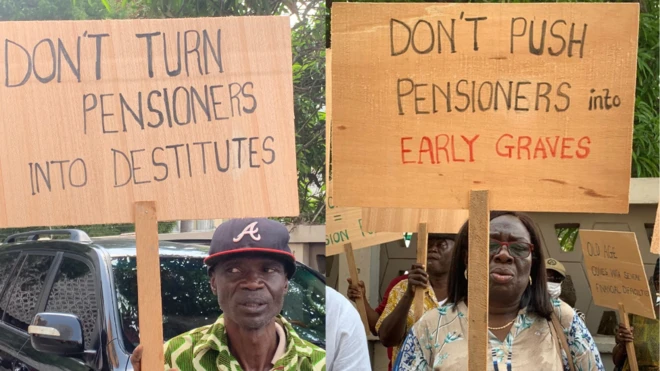 DON'T TURN
PENSIONERS
INTO DESTITUTES
DON'T PUSH
PENSIONERS into
EARLY GRAVES
A
OLD AGE
FINANCIAL